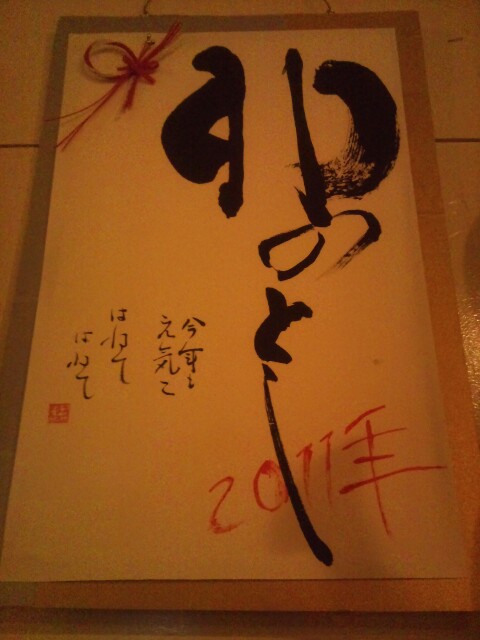 卯のとし
今年も
元気に
はねて
はねて
2011年